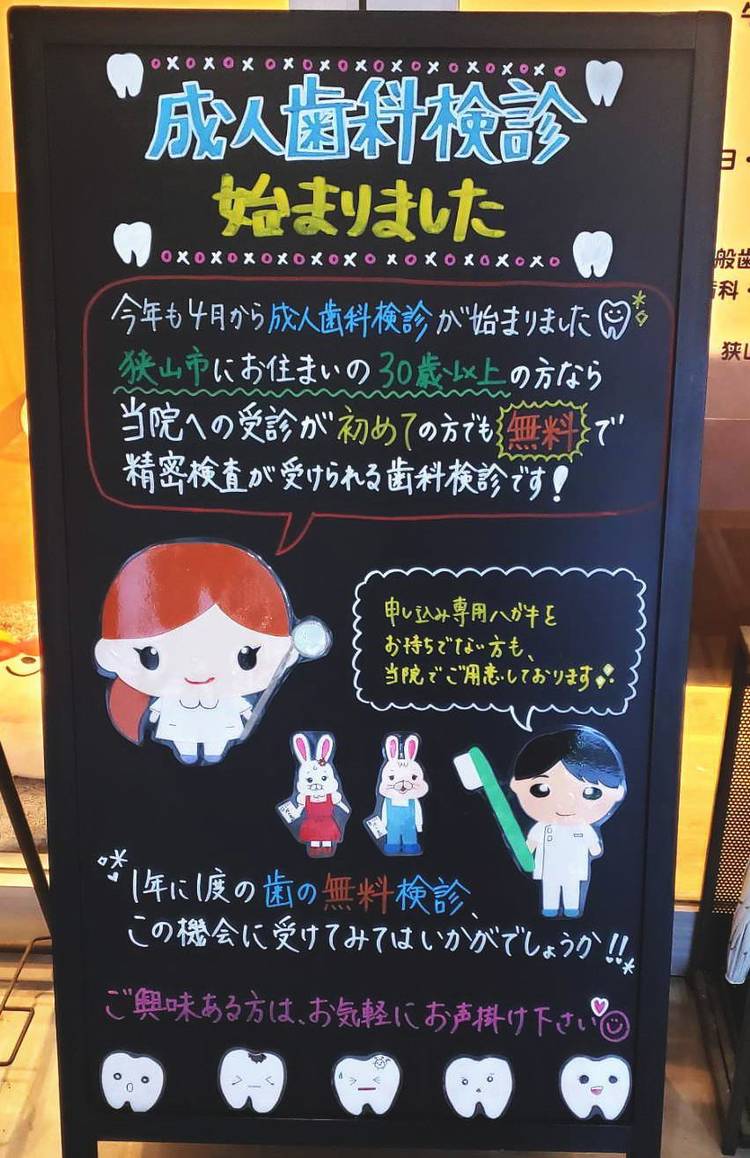 成人歯科検診
始まりました
今年も4月から成人歯科検診が始まりました
狭山市にお住まいの30歳以上の方なら
当院への受診が初めての方でも無料で
精密検査が受けられる歯科検診です!
申し込み専用ハガキを
お持ちでない方も、
当院でご用意しております
1年に1度の歯の無料検診、
この機会に受けてみてはいかがでしょうか!!
ご興味ある方は、お気軽にお声掛け下さい